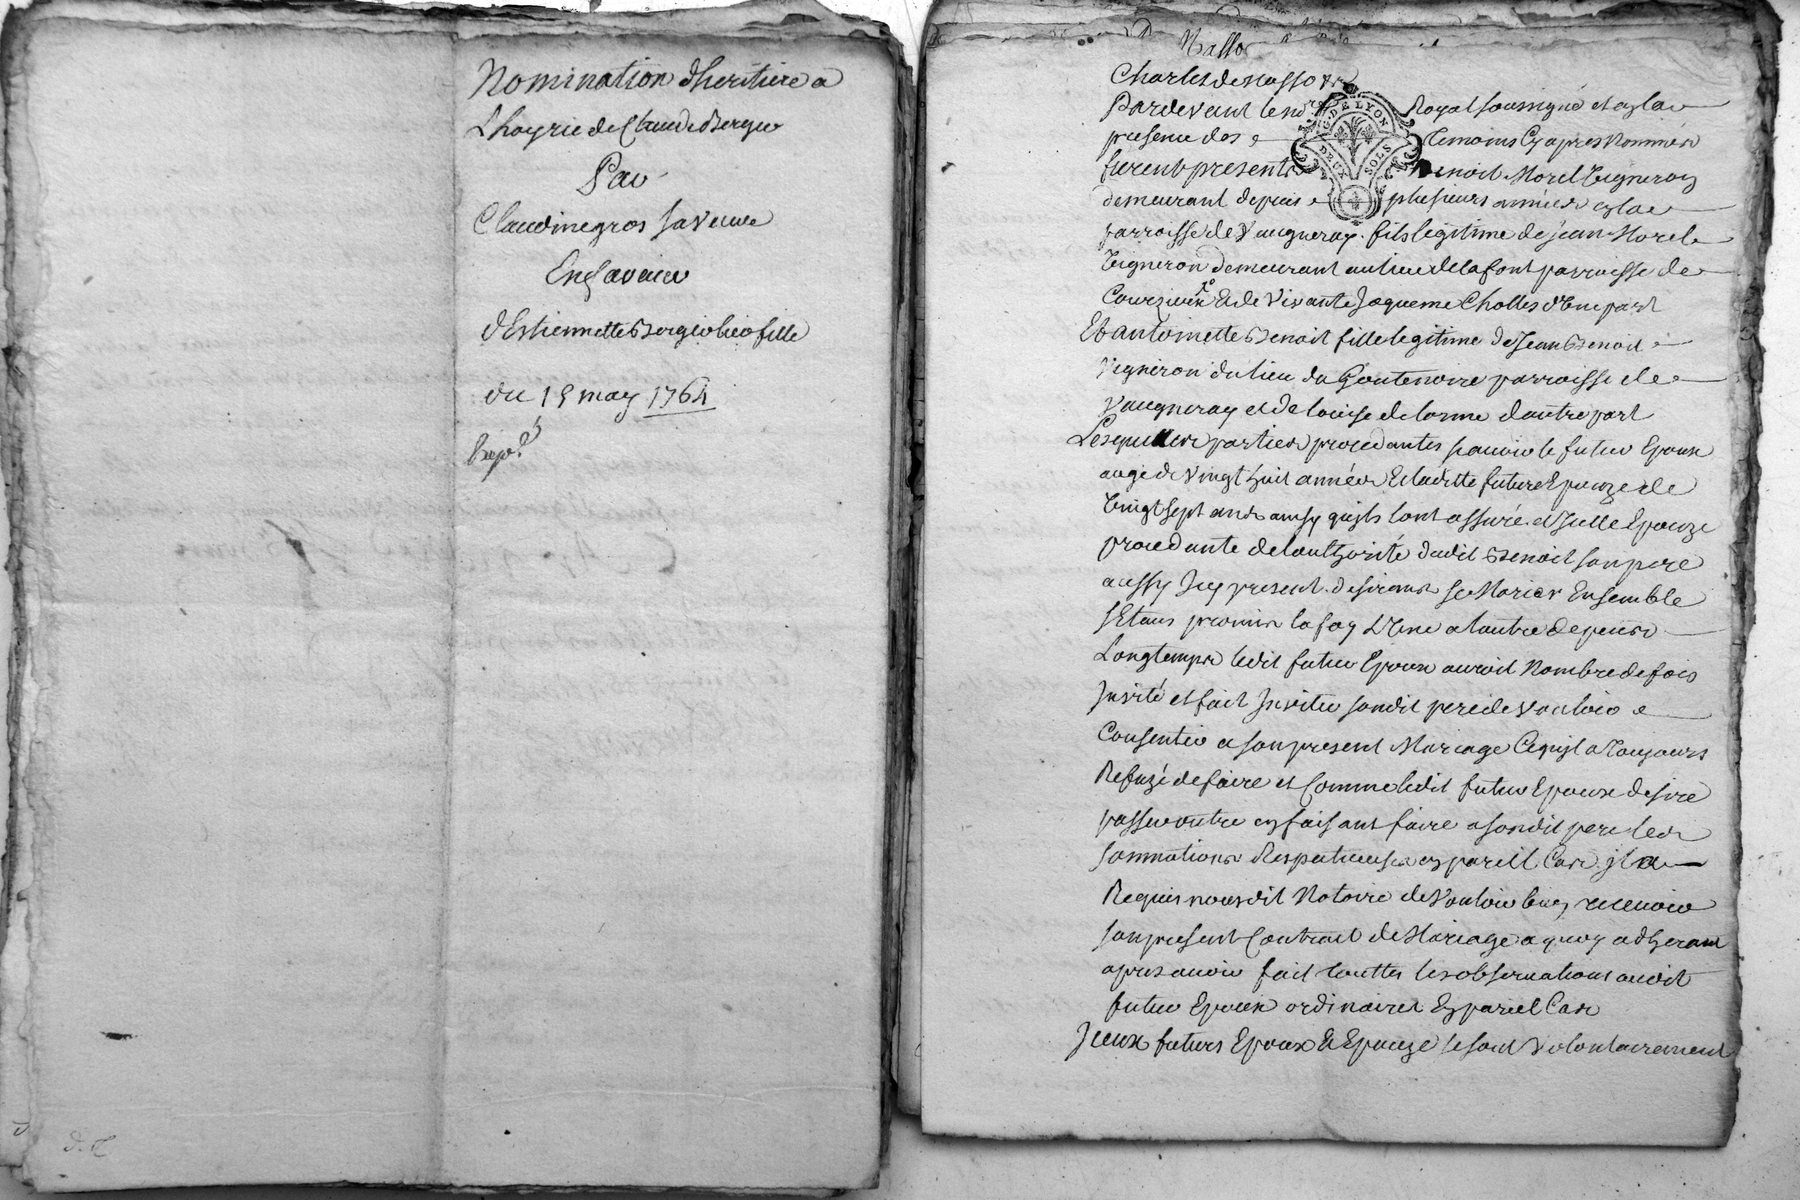 Nomination dheritiere a
Lhoyrie de Claude Bergier
Par
Claudine gros sa veuve
En faveur
d'Estiennette Bergier leur fille
du 19 may 1764
Exp.d
Charles de nasso
Pardevant le no.re Royal soussigné et en la
presence des temoins Cy apres Nommés
furent presents Benoit Morel Vigneron
demeurant depuis plusieurs années en la
parroisse de Vaugneray fils legitime de jean Morel
Vigneron demeurant au lieu de la font parroisse de
Courzieux Et de Vivante Jaqueme Chollet d'Une part
Et antoinette Benoit fille legitime de Jean Benoit
Vigneron du lieu du Goutenoire parroisse de
Vaugneray et de louise delorme dautre part
Lesquelles parties procedantes sçavoir le futur Epoux
augé de Vingt huit années Et laditte future Epouze de
Vingt sept ans ainsy quils lont assuré et Icelle Epouze
procedante de lauthorité dudit Benoit son pere
aussy Icy present desirants se Marier Ensemble
sEtans promis la foy L'Une a lautre depuis
Longtemps ledit futur Epoux auroit Nombre de fois
Invité et fait Inviter sondit pere de Vouloir
Consentir a son present Mariage Ce quil a Toujours
Refuzé de faire et Comme ledit futur Epoux desire
passer outre en faisant faire a sondit pere les
sommations Respectueuses en pareil Cas il a
Requis nous dit Notaire de Vouloir bien recevoir
son present Contract de Mariage a quoy adherant
apres avoir fait touttes les observations audit
futur Epoux ordinaires En pareil Cas
Iceux futurs Epoux Et Epouze se sont Volontairement
G. DE LYON
DEUX SOLS